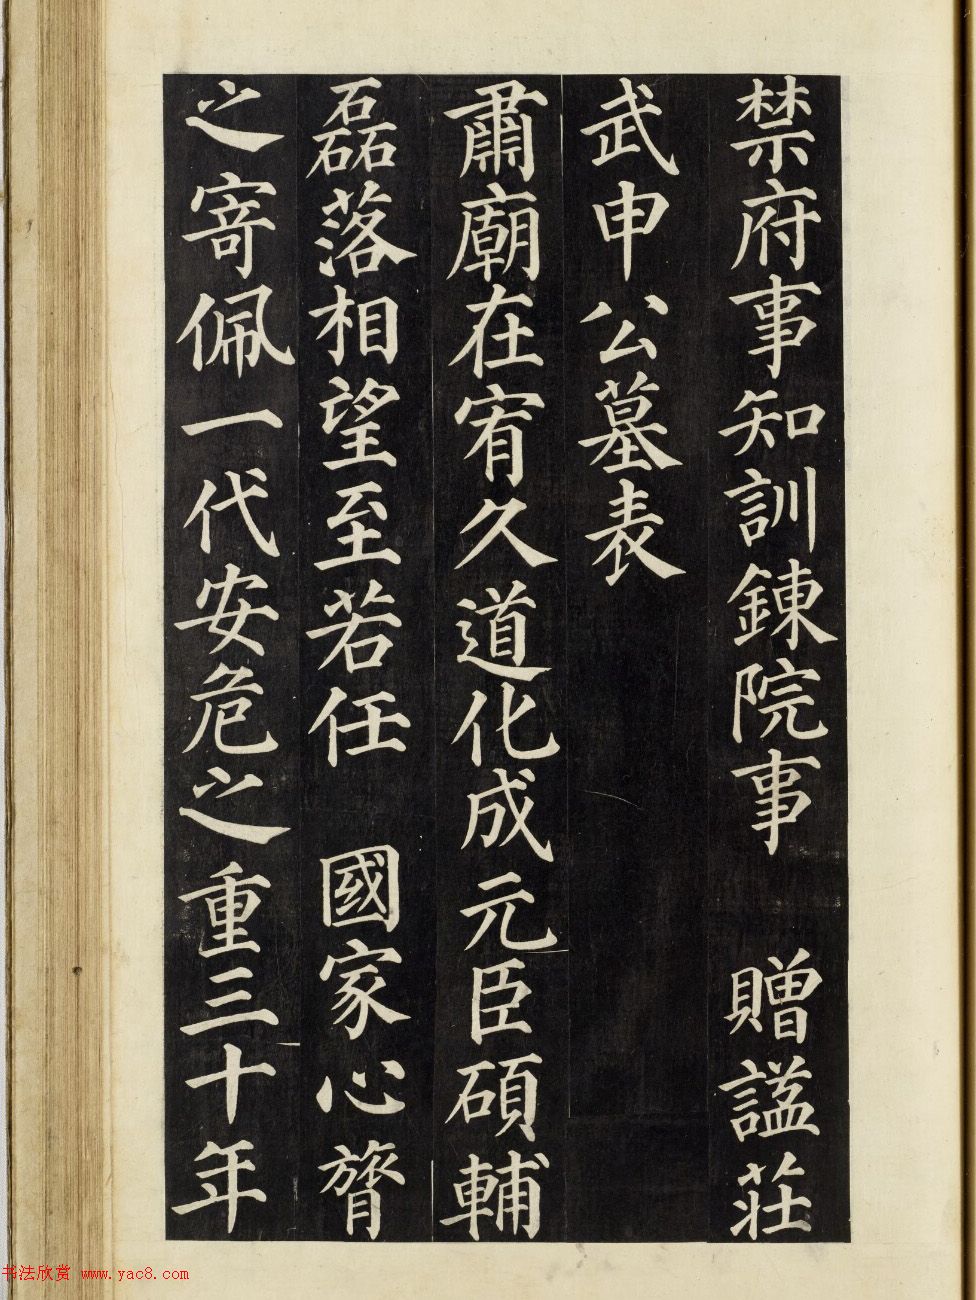 禁府事知訓鍊院事　贈謚莊
武申公墓表
肅廟在宥久道化成元臣碩輔
磊落相望至若任　國家心膂
之寄佩一代安危之重三十年
书法欣赏 www.yac8.com